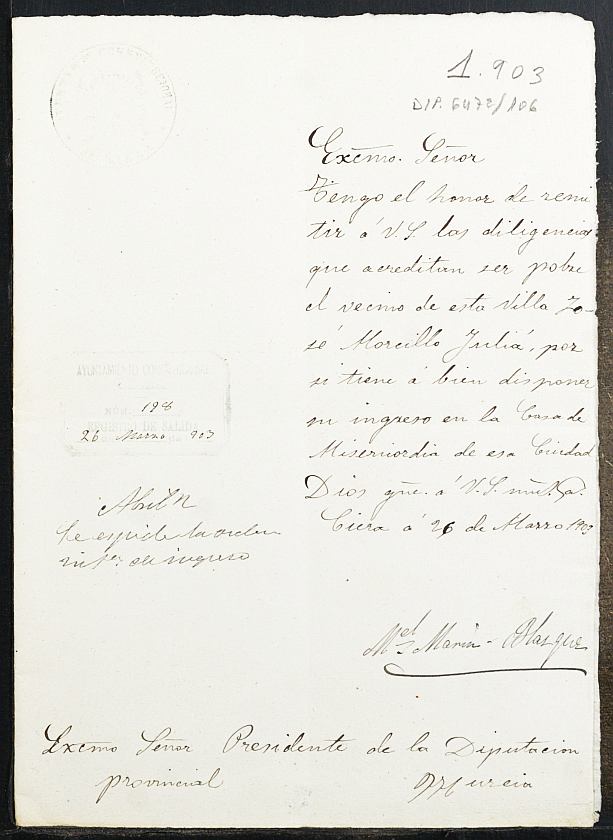 1.903
DIP. 6472/106
Excmo. Señor
Tengo el honor de remi
tir á V.S. las diligencias
que acreditan ser pobre
el vecino de esta Villa Jo-
sé Morcillo Juliá, por
si tiene á bien disponer
su ingreso en la Casa de
Misericordia de esa Ciudad
Dios gue. á V.S. m.s a.
Cieza á 26 de Marzo 1903
AYUNTAMIENTO CONSTITUCIONAL
NÚM. 198
REGISTRO DE SALIDA
26 Marzo 903
Abril
Se espide la orden
de ingreso
Mel Marin-Blazquez
Excmo Señor Presidente de la Diputacion
provincial Murcia